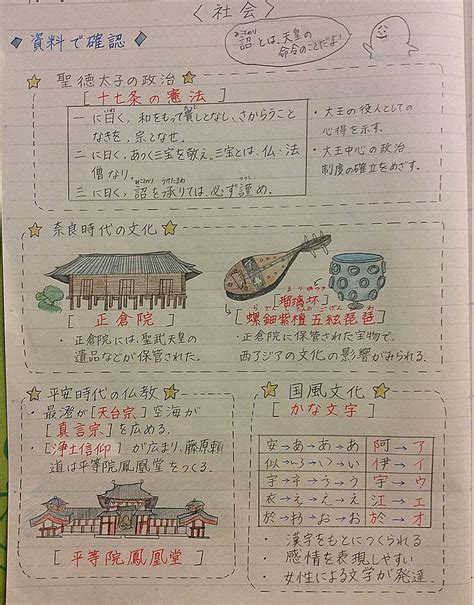 〈社会〉
◆資料で確認◆
みことのり
詔とは、天皇の
命令のことだよ
聖徳太子の政治
[十七条の憲法]
一に曰く、和をもって貴しとなし、さからうこと
なきを、宗となせ。
二に曰く、あつく三宝を敬え。三宝とは、仏・法
僧なり。
みことのり うけたまわ
三に曰く、詔を承りては、必ず謹め。
・大王の役人としての
心得を示す。
・大王中心の政治
制度の確立をめざす。
奈良時代の文化
[正倉院]
・正倉院には、聖武天皇の
遺品などが保管された。
[瑠璃坏]
[螺鈿紫檀五絃琵琶]
・正倉院に保管された宝物で、
西アジアの文化の影響がみられる。
平安時代の仏教
・最澄が[天台宗]空海が
[真言宗]を広める。
・[浄土信仰]が広まり、藤原頼
道は平等院鳳凰堂をつくる。
[平等院鳳凰堂]
国風文化
[かな文字]
安→あ→あ→あ 阿→ア
以→い 伊→イ
宇→う→う 宇→ウ
衣→え→え 江→エ
於→お→お 於→オ
・漢字をもとにつくられる
・感情を表現しやすい
・女性による文学が発達